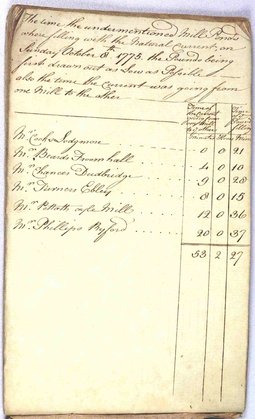 The time the undermentioned Mill Ponds
where filling with the Natural Current, on
Sunday October 8th 1775. the Ponds being
first drawn out as Low as Possible
also the time the current was going from
one Mill to the other
Time of
the Current
going from
Minutes
Mr Cook Lodgmore 0 0 21
Mr Beards Fromhall 4 0 10
Mr Chances Dudbridge 9 0 28
Mr Turners Ebley 8 0 15
Mr Mill 12 0 36
Mr Phillips Ryford 20 0 37
53 2 27